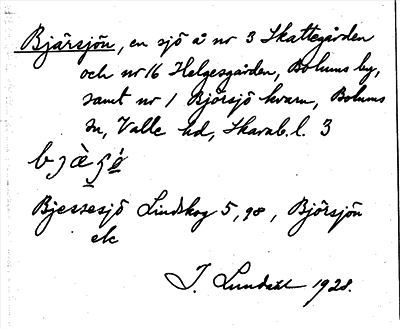 Bjärsjön, en sjö å nr 3 Skattegården
och nr 16 Helgesgården, Bolums by,
samt nr 1 Björsjö kvarn, Bolums
sn, Valle hd, Skarab. l. 3
Bjessesjö Lindskog 5, 98, Björsjön
etc
J. Lundahl 1928.